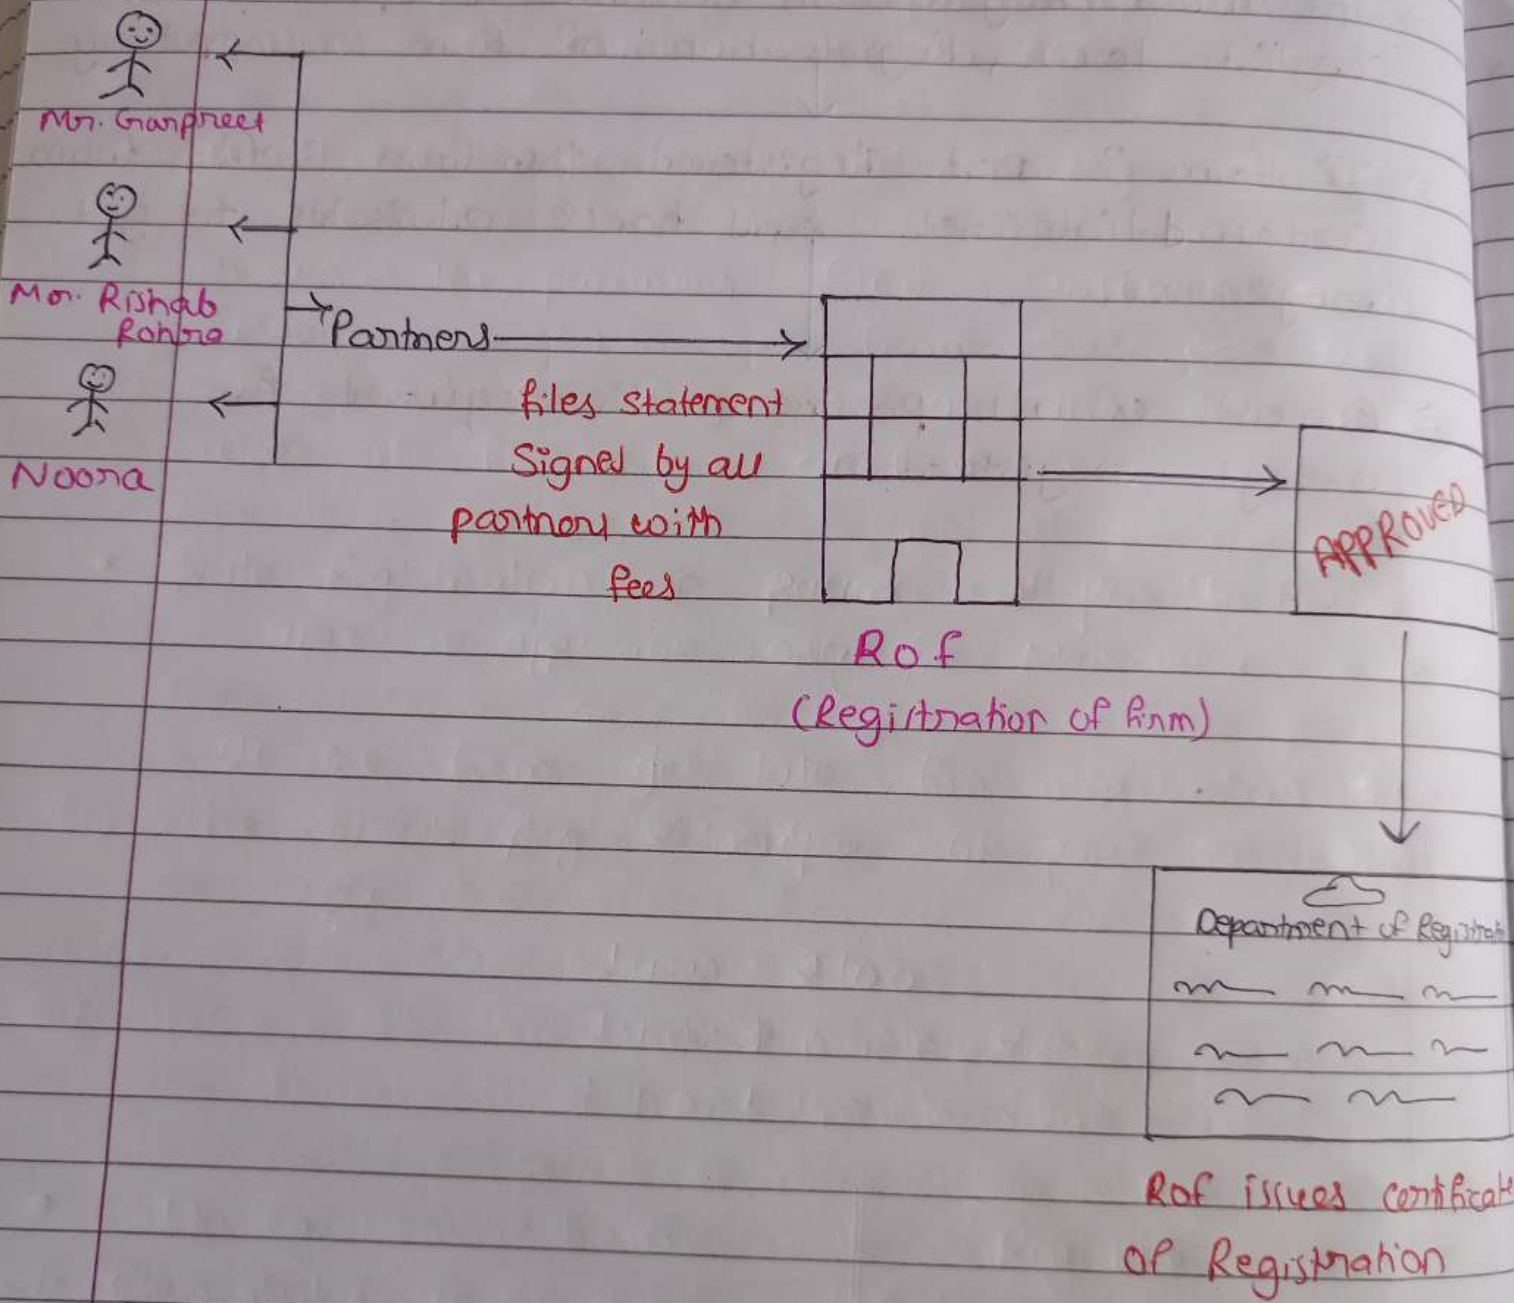 Mr. Garpreet
Mr. Rishab
Rohra
Partners
files statement
Signed by all
partners with
fees
Noora
APPROVED
Rof
(Registration of firm)
Department of Registrati
Rof issues certificate
of Registration